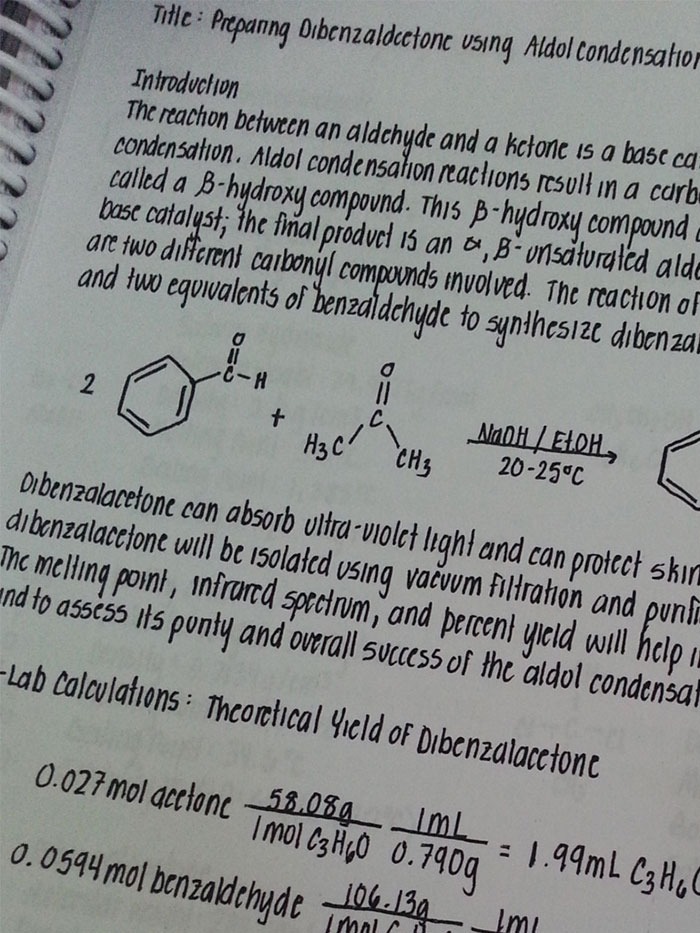 Title: Preparing Dibenzaldcetone using Aldol Condensation
Introduction
The reaction between an aldehyde and a ketone is a base ca
condensation. Aldol condensation reactions result in a carb
called a β-hydroxy compound. This β-hydroxy compound
base catalyst; the final product is an α,β-unsaturated alde
are two different carbonyl compounds involved. The reaction of
and two equivalents of benzaldehyde to synthesize dibenzal
O O
2 C-H + C NaOH / EtOH
H3C CH3 20-25°C
Dibenzalacetone can absorb ultra-violet light and can protect skin
dibenzalacetone will be isolated using vacuum filtration and purifi
The melting point, infrared spectrum, and percent yield will help i
and to assess its purity and overall success of the aldol condensat
-Lab Calculations: Theoretical Yield of Dibenzalacetone
0.027 mol acetone 58.08g 1mL
1 mol C3H6O 0.790g = 1.99mL C3H6O
0.0594 mol benzaldehyde 106.13g 1mL
1mol C